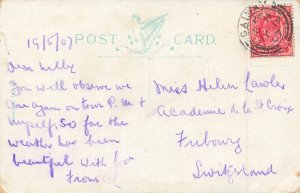 19/5/07
POST CARD
Dear Milly
You will observe we
are again on tour P. M &
myself, So far the
weather has been
beautiful with love
From
Miss Helen Lawler
Academie de la St Croix
Fribourg
Switzerland